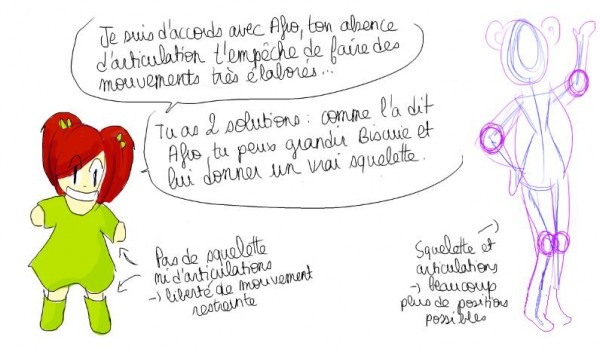 Je suis d'accords avec Afro, ton absence
d'articulation t'empêche de faire des
mouvements très élaborés...
Tu as 2 solutions : comme l'a dit
Afro, tu peux grandir Biscuie et
lui donner un vrai squelette.
Pas de squelette
ni d'articulations
→ liberté de mouvement
restreinte
Squelette et
articulations
→ beaucoup
plus de positions
possibles